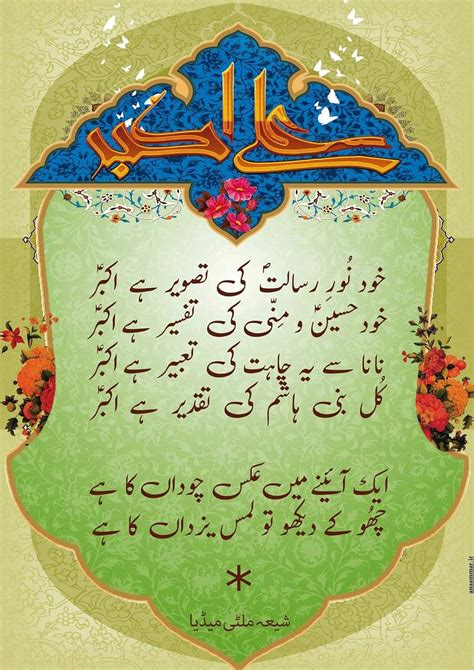 علی اکبر
خود نُورِ رسالتؐ کی تصویر ہے اکبرؑ
خود حسینؑ و مِنّی کی تفسیر ہے اکبرؑ
نانا سے یہ چاہت کی تعبیر ہے اکبرؑ
کُل بنی ہاشم کی تقدیر ہے اکبرؑ
ایک آیئنے میں عکس چوداں کا ہے
چھُو کے دیکھو تو لمس یزداں کا ہے
*
شیعہ ملٹی میڈیا